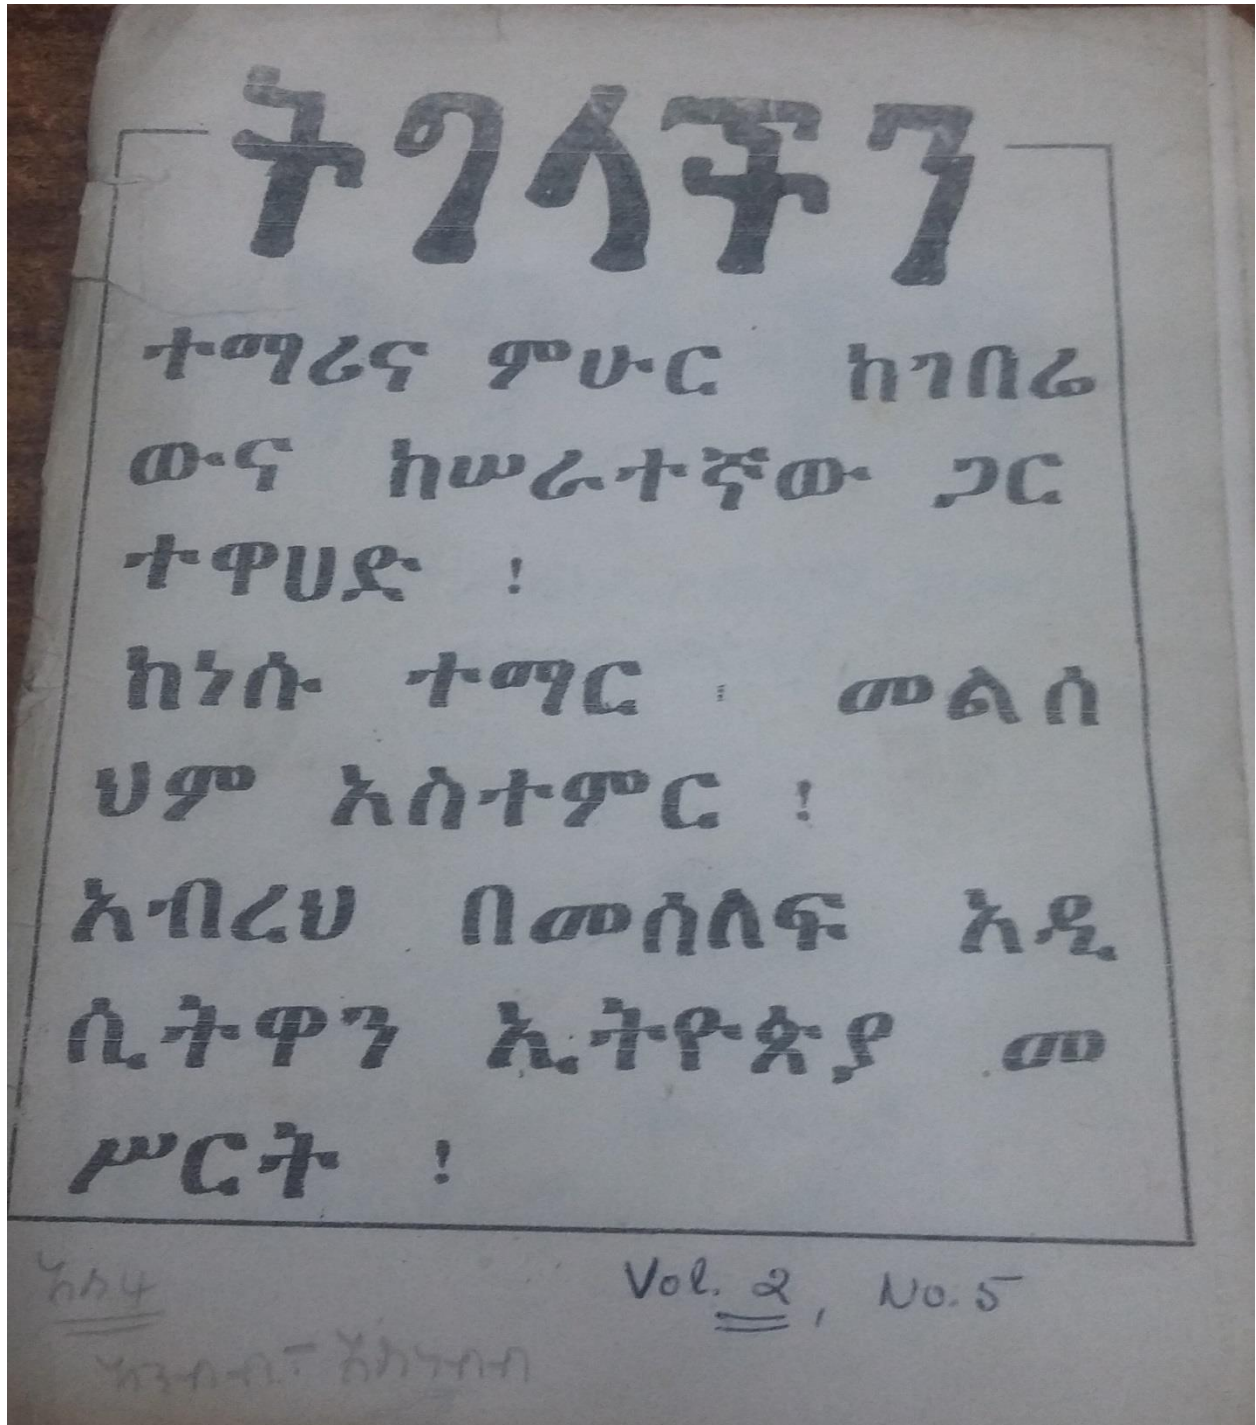 ትግላችን
ተማሪና ምሁር ከገበሬ
ውና ከሠራተኛው ጋር
ተዋሀድ !
ከነሱ ተማር ፡ መልሰ
ህም አስተምር !
አብረህ በመሰለፍ አዲ
ሲትዋን ኢትዮጵያ መ
ሥርት !
Vol. 2, No. 5